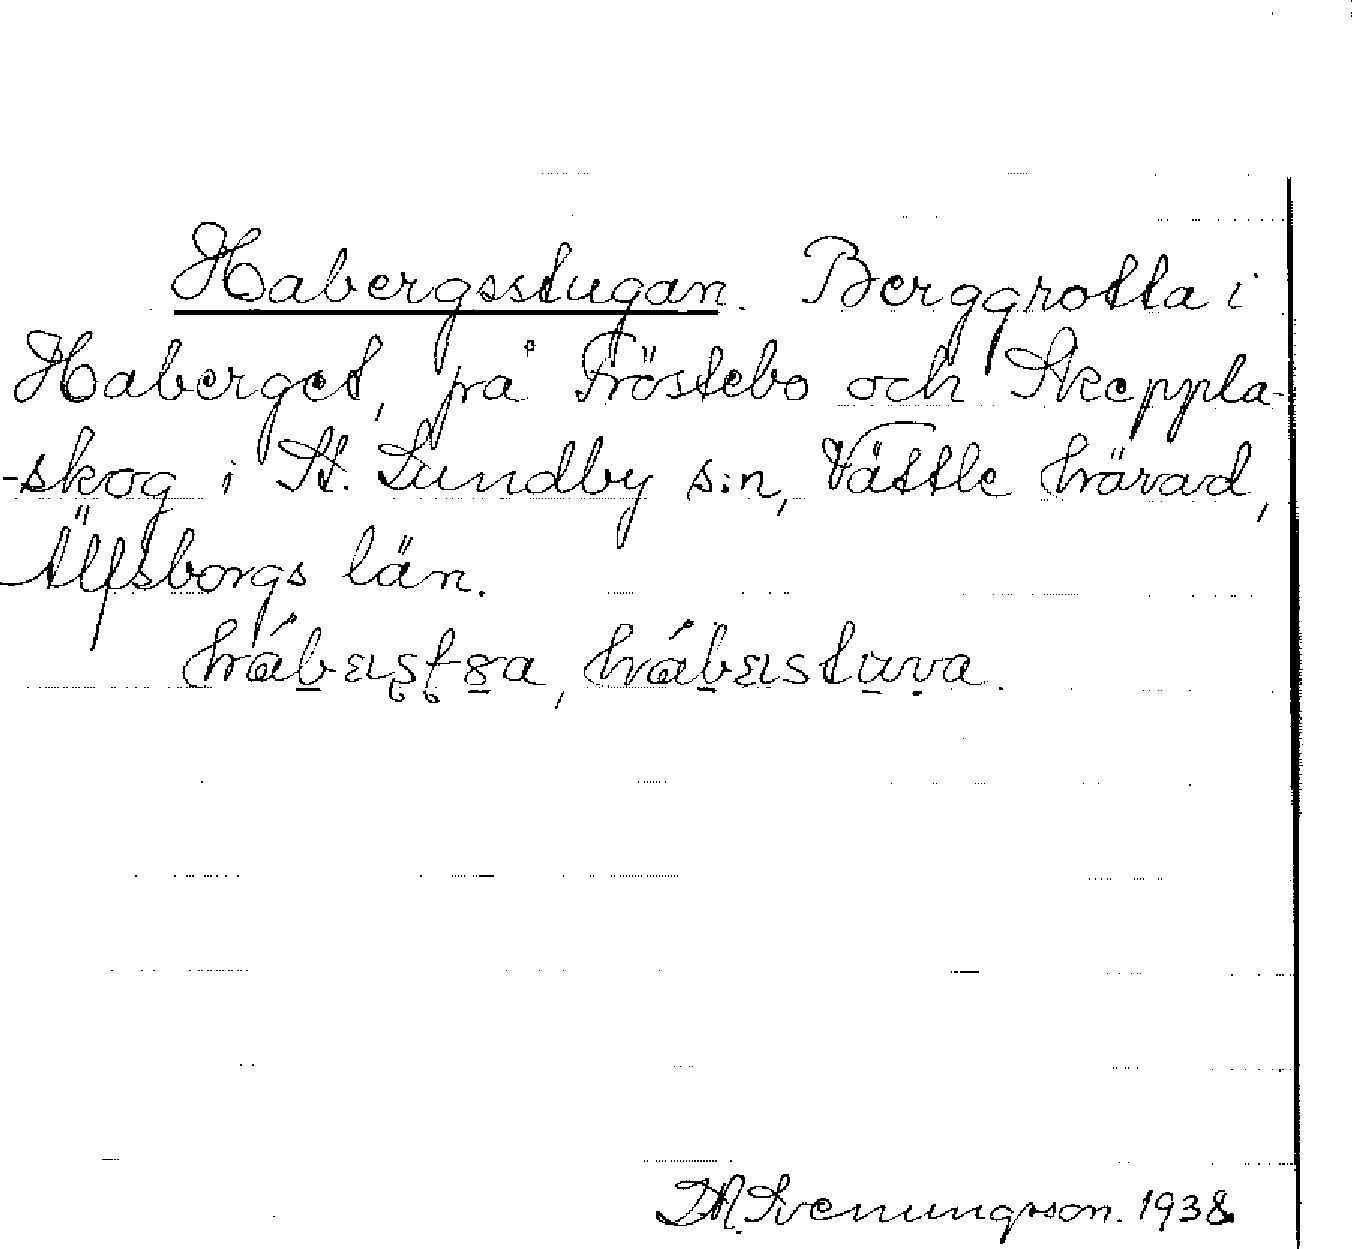 Habergsstugan. Berggrotta i
Haberget, på Tröstebo och Skeppla-
-skog i St. Lundby s:n, Vättle härad,
Älfsborgs län.
Svenungsson. 1938